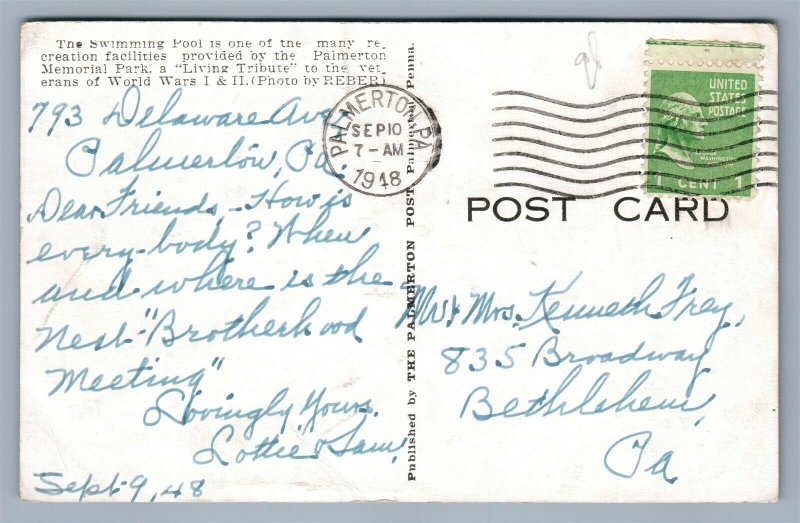 The Swimming Pool is one of the many re_
creation facilities provided by the Palmerton
Memorial Park, a "Living Tribute" to the vet_
erans of World Wars I & II. (Photo by REBER)
793 Delaware Ave
Palmerton, Pa.
Dear Friends, - How is
every-body? When
and where is the
next "Brotherhood
Meeting"
Lovingly Yours,
Lottie & Sam,
Sept. 9, 48
Published by THE PALMERTON POST, Palmerton, Penna.
PALMERTON, PA.
SEP 10
7 - AM
1948
UNITED
STATES
POSTAGE
GEORGE
WASHINGTON
1 CENT 1
POST CARD
Mr & Mrs. Kenneth Frey,
835 Broadway
Bethlehem,
Pa